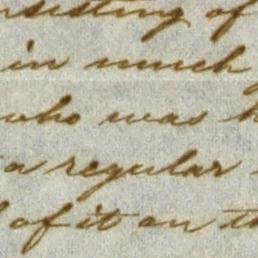 nsisting of
in much
who was h
a regular
of it on th